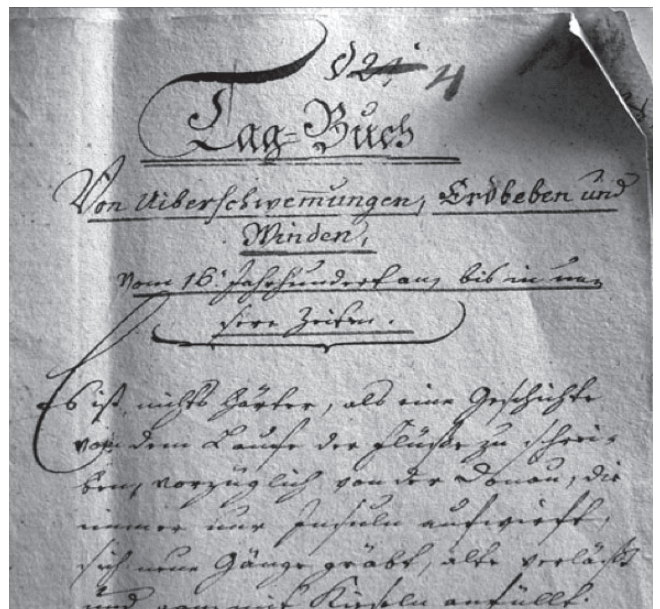 4
Tag-Buch
Von Uiberschwem̅ungen, Erdbeben und
Winden,
vom 16. Jahrhundert an, bis in un-
sere Zeiten.
Es ist nichts härter, als eine Geschichte
von dem Laufe der Flüße zu schrei-
ben, vorzüglich von der Donau, die
immer nur Insuln aufwirft,
sich neue Gänge gräbt, alte verläßt
und ganz mit Kieseln anfüllt.